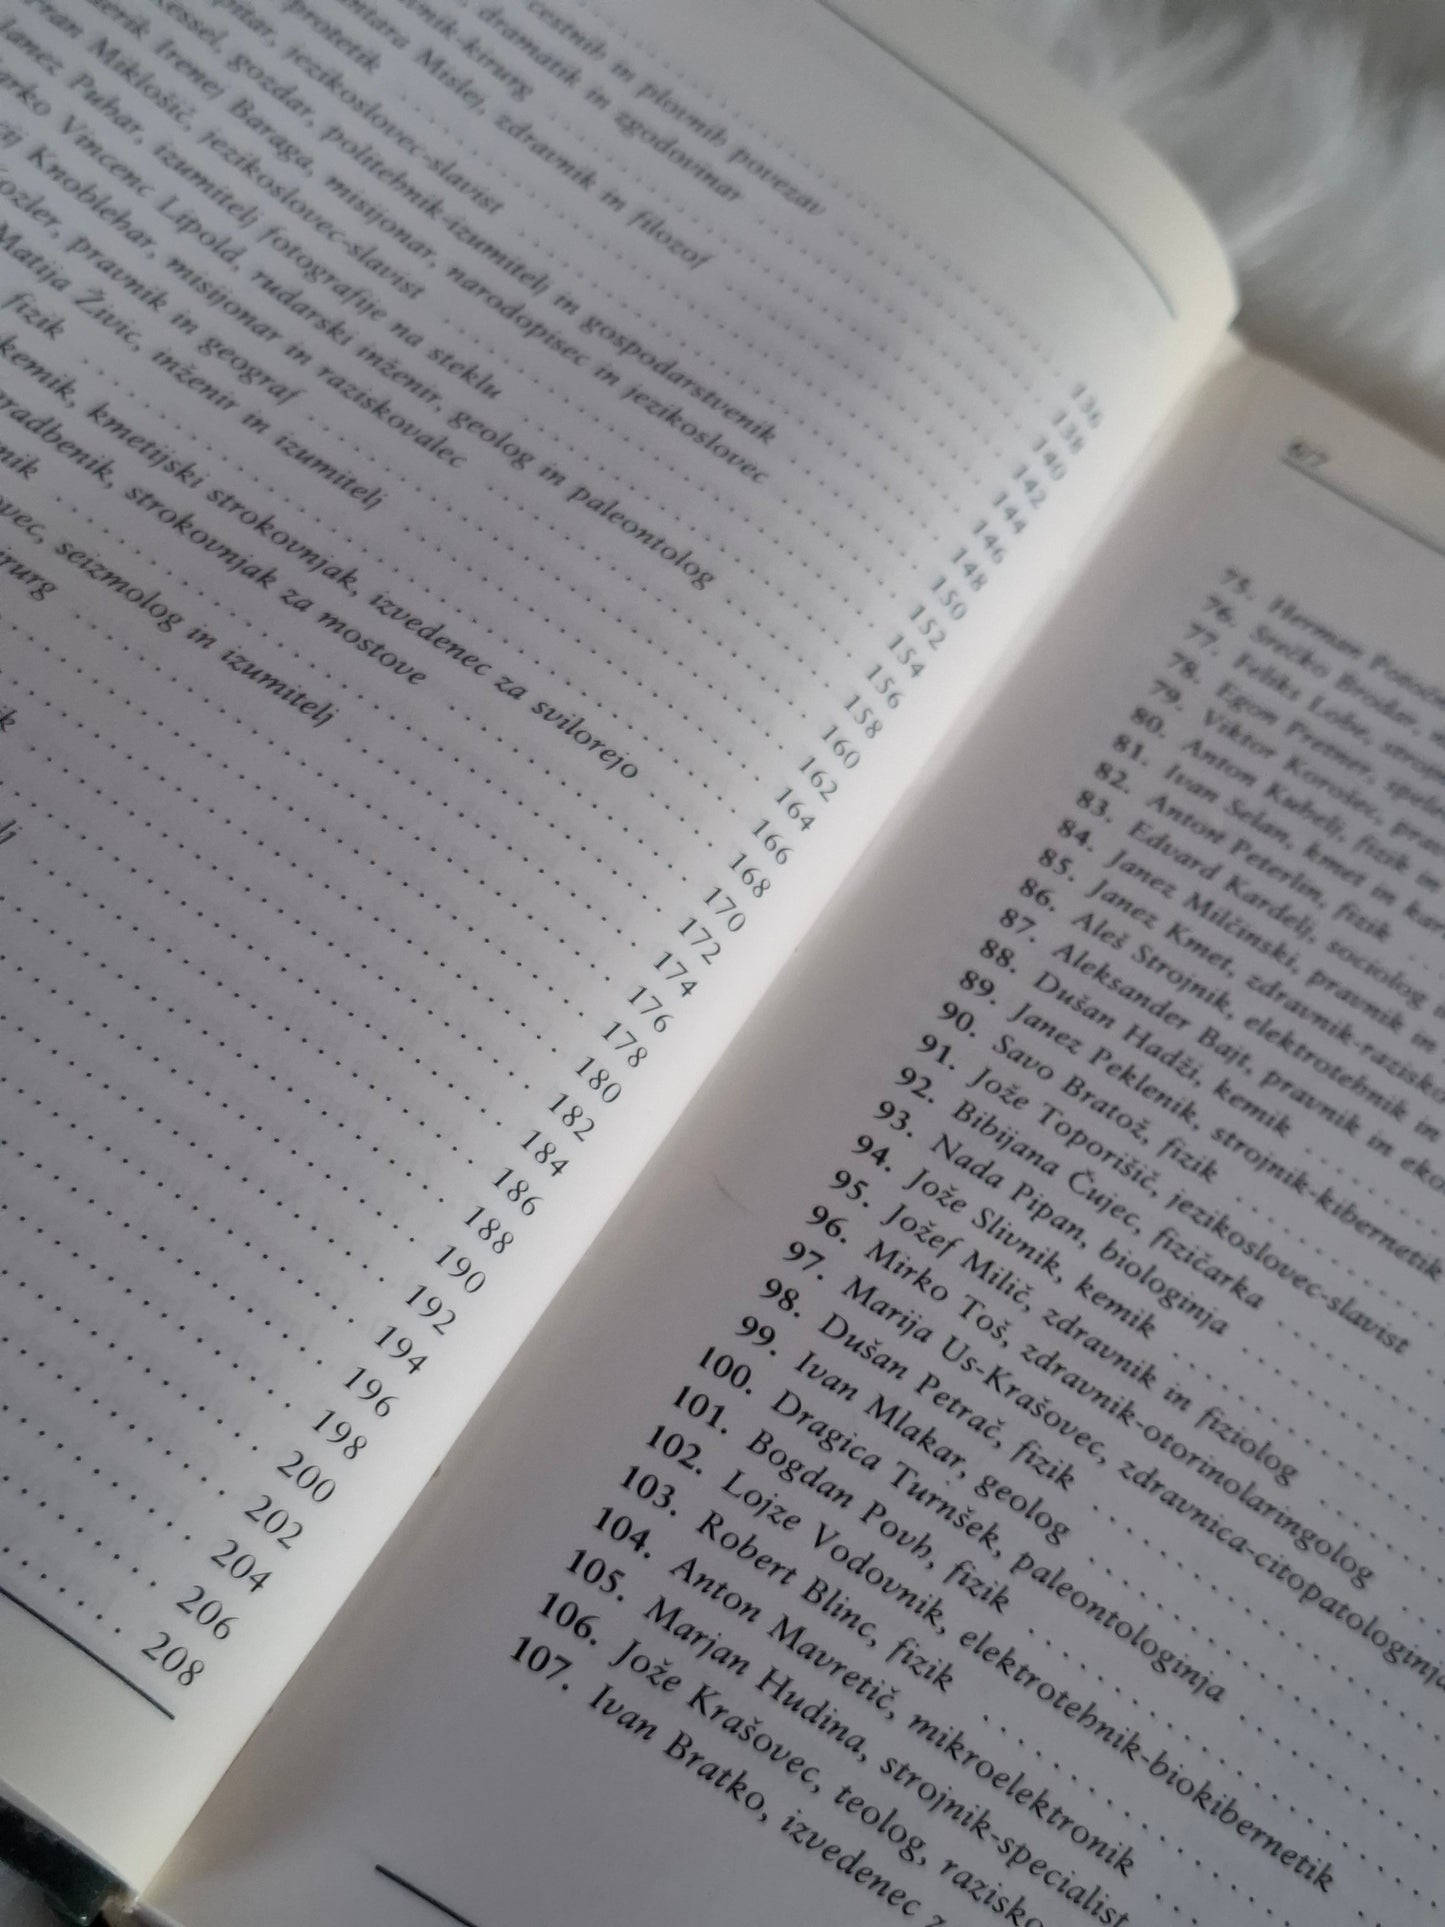 cestnih in plovnih povezav . . . 136
dramatik in zgodovinar . . . 138
Mislej, zdravnik in filozof . . . 140
kirurg . . . 142
protetik . . . 144
jezikoslovec-slavist . . . 146
gozdar, politehnik-izumitelj in gospodarstvenik . . . 148
Irenej Baraga, misijonar, narodopisec in jezikoslovec . . . 150
Miklošič, jezikoslovec-slavist . . . 152
Janez Puhar, izumitelj fotografije na steklu . . . 154
Vincenc Lipold, rudarski inženir, geolog in paleontolog . . . 156
Knoblehar, misijonar in raziskovalec . . . 158
pravnik in geograf . . . 160
Matija Živic, inženir in izumitelj . . . 162
fizik . . . 164
kemik, kmetijski strokovnjak, izvedenec za svilorejo . . . 166
strokovnjak za mostove . . . 168
170
seizmolog in izumitelj . . . 172
174
176
178
180
182
184
186
188
190
192
194
196
198
200
202
204
206
208
6/7
75. Herman
76. Srečko Brodar,
77. Feliks Lobe,
78. Egon Pretner,
79. Viktor Korošec,
80. Anton Kuhelj, fizik in
81. Ivan Selan, kmet in
82. Anton Peterlin, fizik
83. Edvard Kardelj, sociolog
84. Janez Milčinski, pravnik in
85. Janez Kmet,
86. Aleš Strojnik, elektrotehnik in
87. Aleksander Bajt, pravnik in
88. Dušan Hadži, kemik . . .
89. Janez Peklenik, strojnik-kibernetik
90. Savo Bratož, fizik . . .
91. Jože Toporišič, jezikoslovec-slavist
92. Bibijana Čujec, fizičarka . . .
93. Nada Pipan, biologinja . . .
94. Jože Slivnik, kemik . . .
95. Jožef Milič, zdravnik in fiziolog . . .
96. Mirko Toš, zdravnik-otorinolaringolog
97. Marija Us-Krašovec, zdravnica-citopatologinja
98. Dušan Petrač, fizik . . .
99. Ivan Mlakar, geolog . . .
100. Dragica Turnšek, paleontologinja . . .
101. Bogdan Povh, fizik . . .
102. Lojze Vodovnik, elektrotehnik-biokibernetik
103. Robert Blinc, fizik . . .
104. Anton Mavretič, mikroelektronik . . .
105. Marjan Hudina, strojnik-specialist
106. Jože Krašovec, teolog,
107. Ivan Bratko, izvedenec